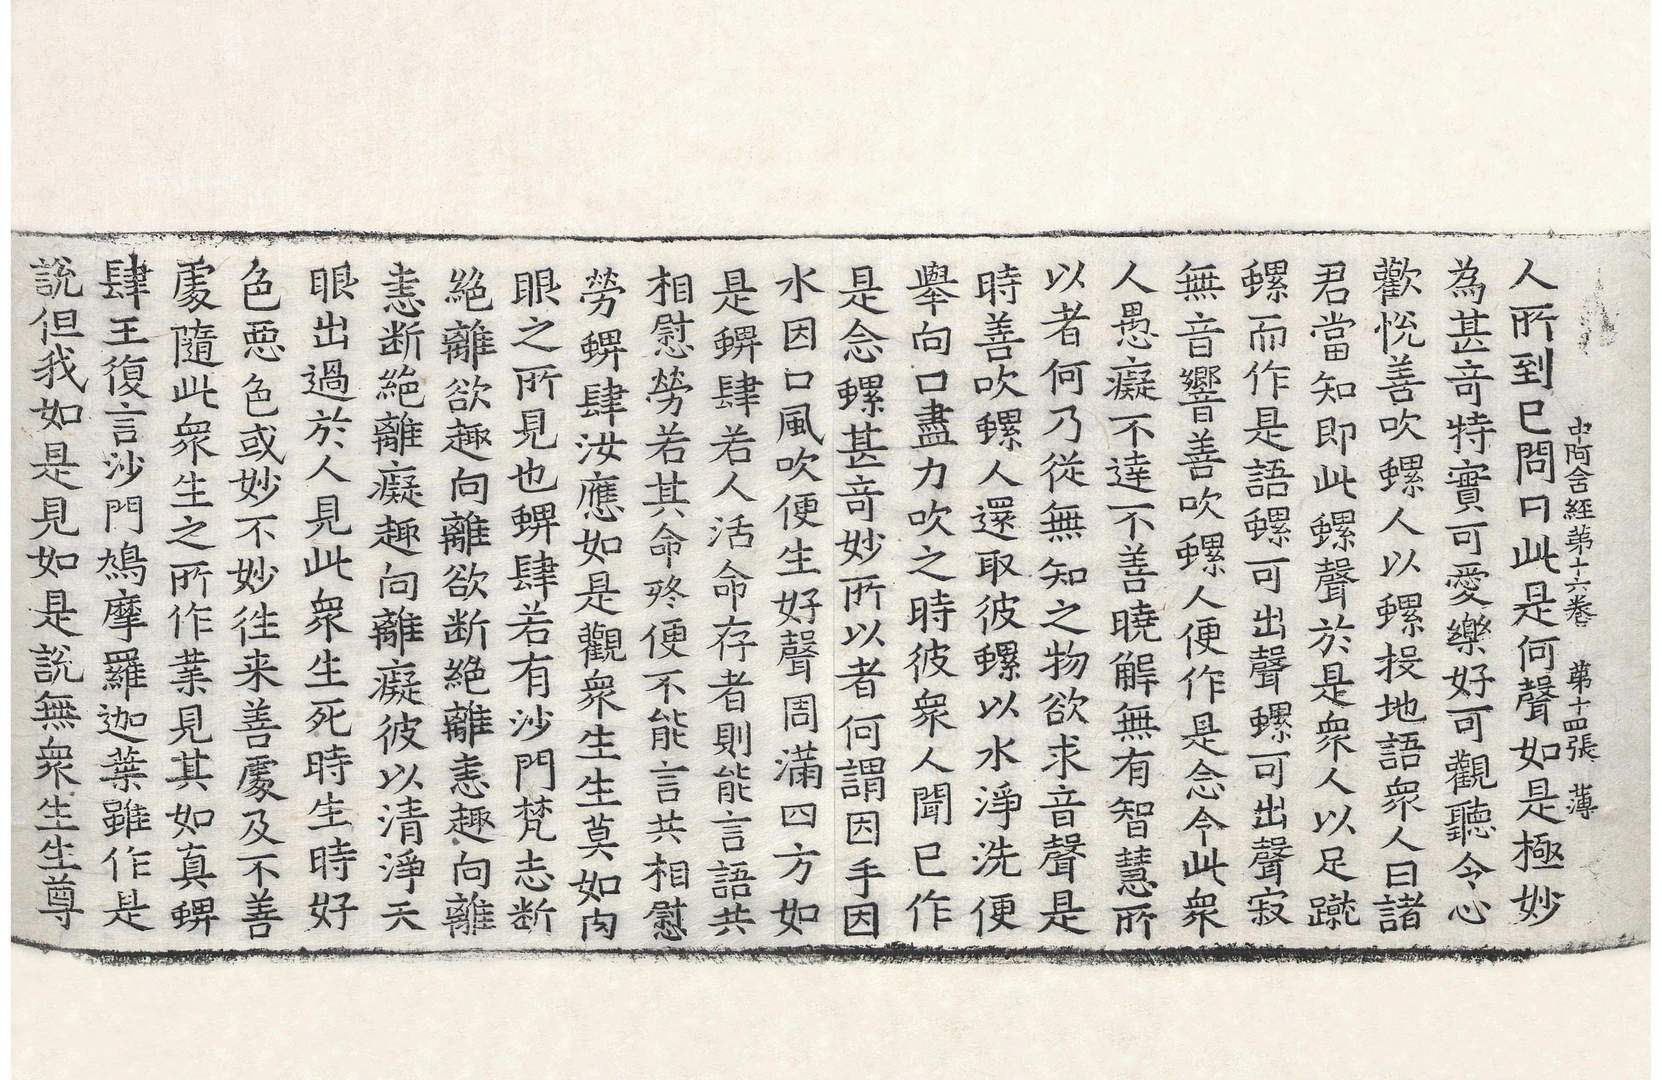 中阿含經第十六卷 第十四張 薄
人所到已問曰此是何聲如是極妙
為甚竒特實可愛樂好可觀聽令心
歡悅善吹螺人以螺投地語衆人曰諸
君當知即此螺聲於是衆人以足蹴
螺而作是語螺可出聲螺可出聲寂
無音響善吹螺人便作是念今此衆
人愚癡不達不善曉解無有智慧所
以者何乃從無知之物欲求音聲是
時善吹螺人還取彼螺以水淨洗便
舉向口盡力吹之時彼衆人聞已作
是念螺甚竒妙所以者何謂因手因
水因口風吹便生好聲周滿四方如
是蜱肆若人活命存者則能言語共
相慰勞若其命終便不能言共相慰
勞蜱肆汝應如是觀衆生生莫如肉
眼之所見也蜱肆若有沙門梵志断
絕離欲趣向離欲断絕離恚趣向離
恚断絕離癡趣向離癡彼以清淨天
眼出過於人見此衆生死時生時好
色惡色或妙不妙往来善處及不善
處隨此衆生之所作業見其如真蜱
肆王復言沙門鳩摩羅迦葉雖作是
說但我如是見如是說無衆生生尊